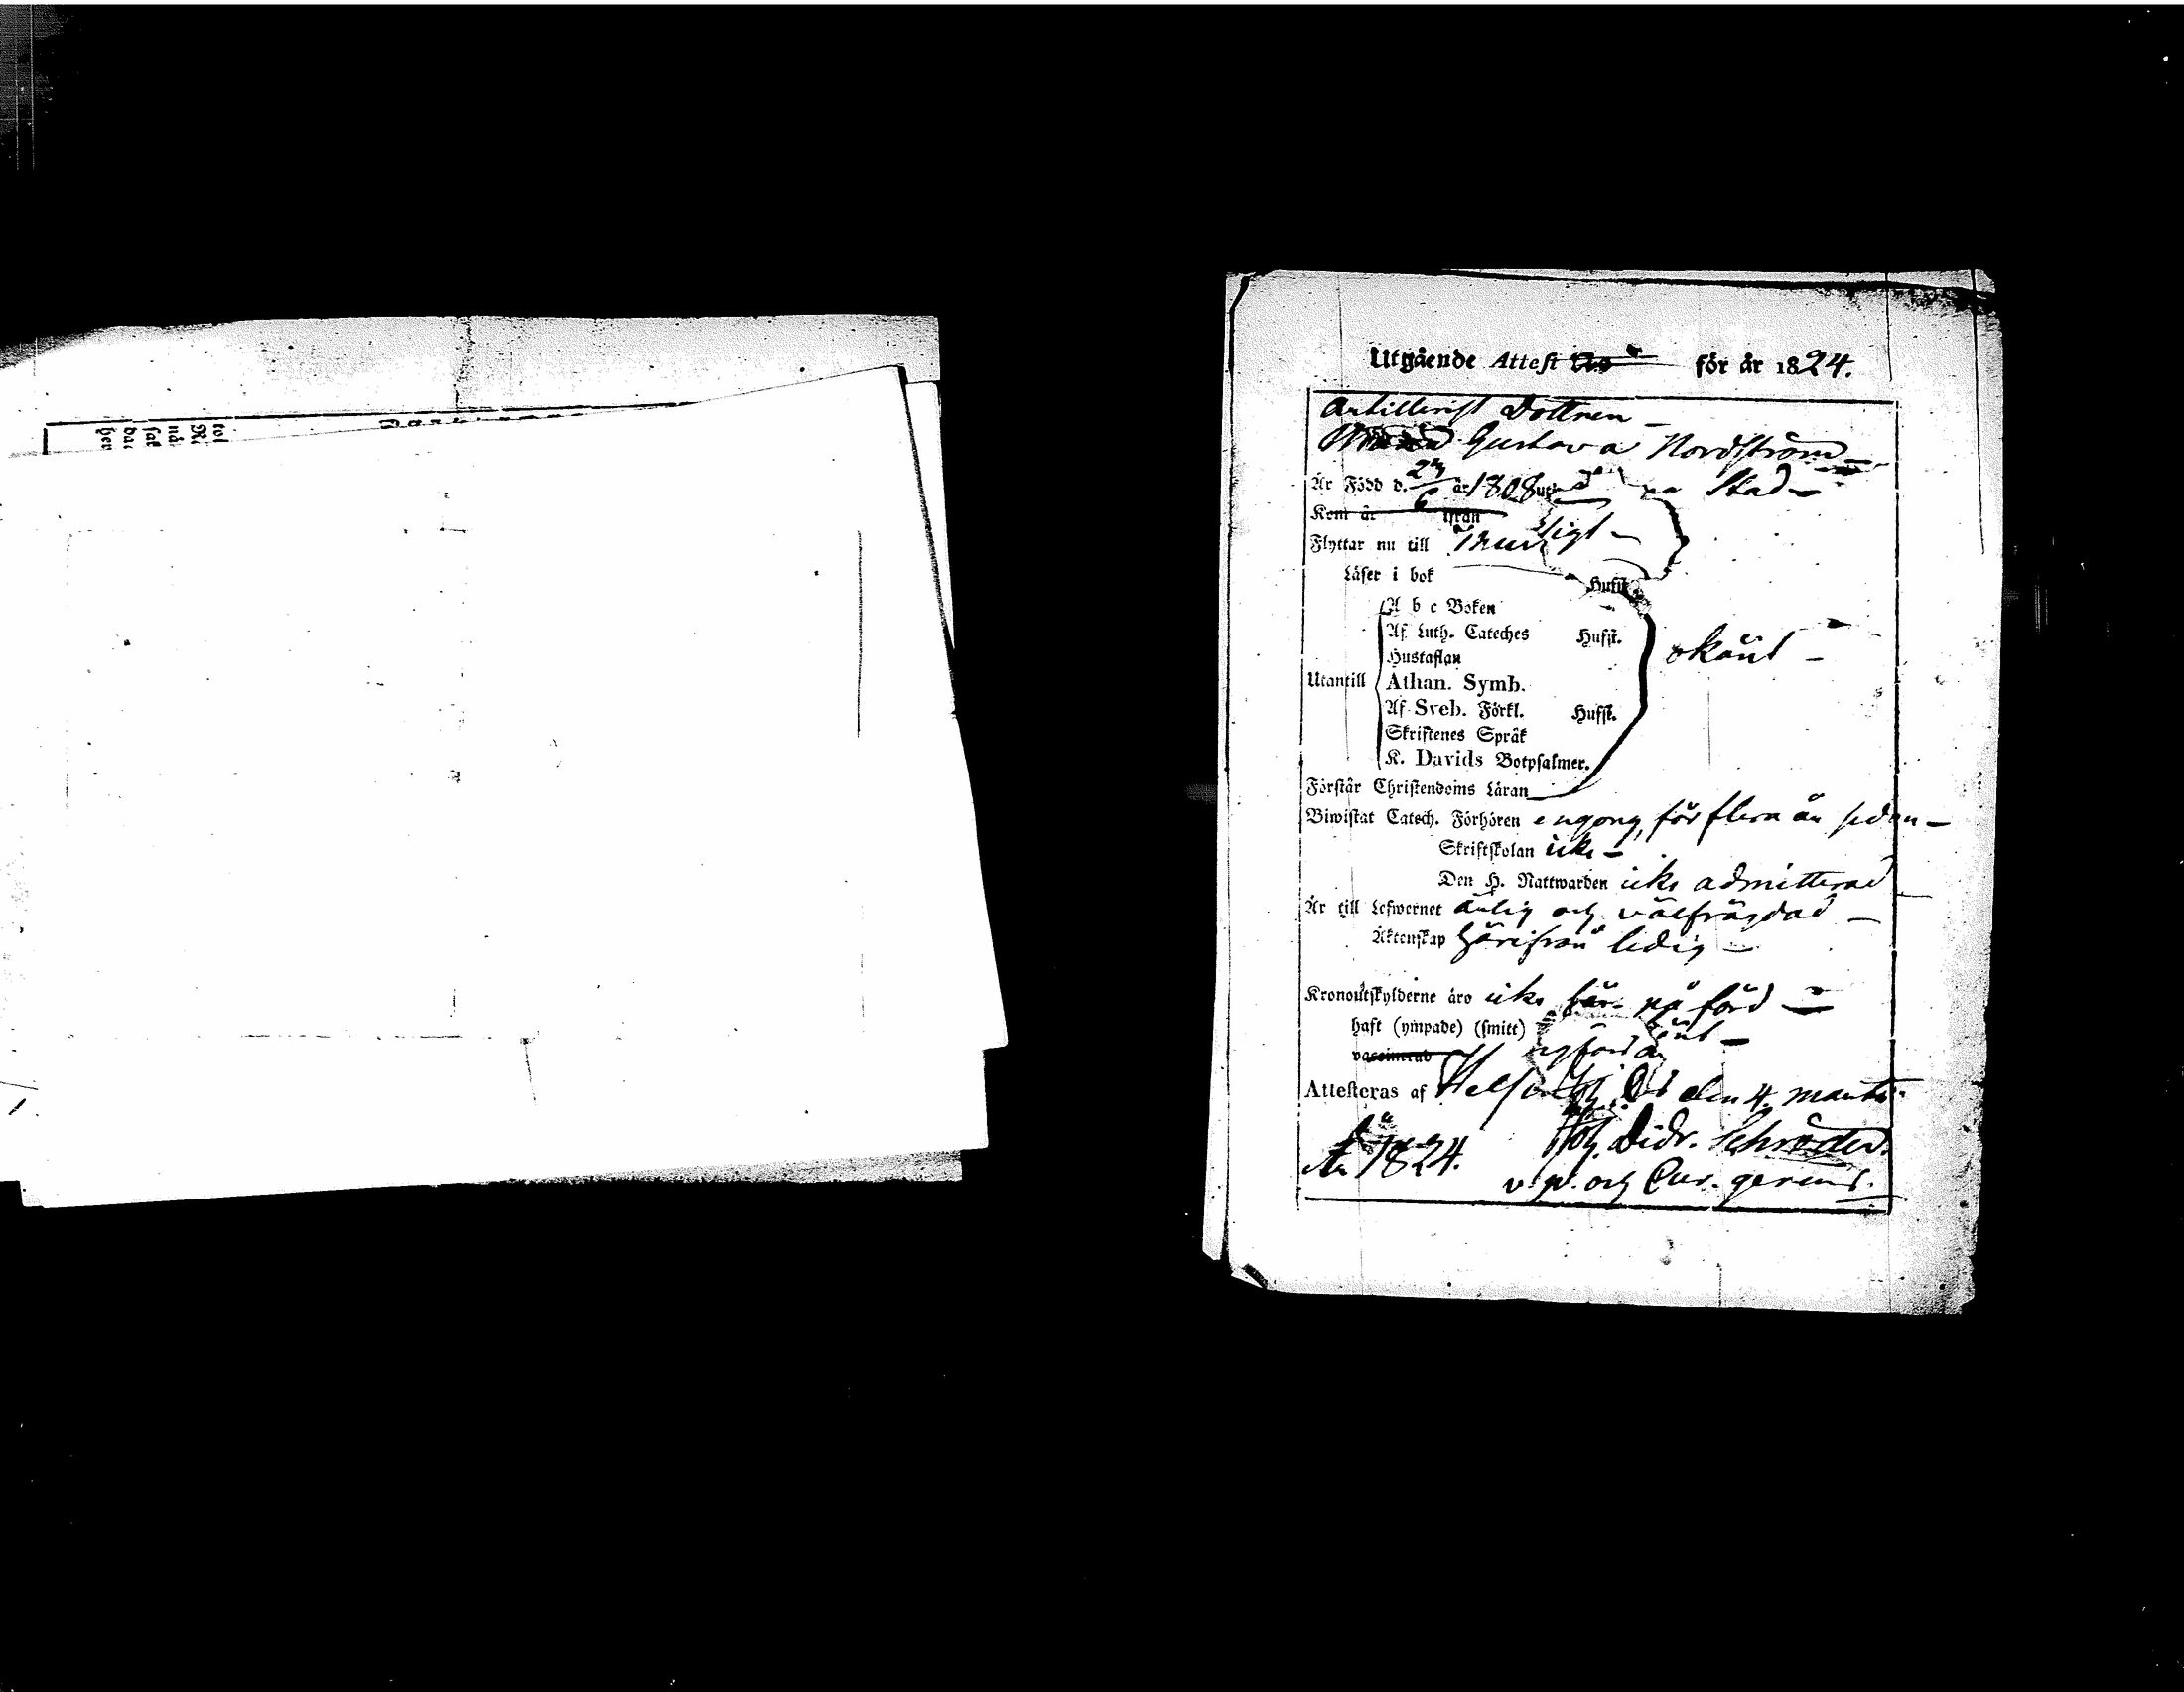 Utgående Attest No för år 1824.
Artillerist Dottren
Gustava Nordström
Är Född d. 23/6 år 1808 uti Stad
Kom år ifrån
Flyttar nu till
Läser i bok Hufst.
A b c Boken
Af Luth. Cateches Hufst.
Hustaflan okänt
Utantill Athan. Symb.
Af Sveb. Förkl. Hufst.
Skriftenes Språk
K. Davids Botpsalmer.
Förstår Christendoms Läran
Biwistat Catech. Förhören engong, för flera år sedan
Skriftskolan icke
Den H. Nattwarden icke admitterad
Är till Lefwernet ärlig och välfrägdad
Äktenskap härifrån ledig
Kronoutskylderne äro icke här påförd
haft (ympade) (smitt)
vaccinerad
Attesteras af den 4. Martii
År 1824. Joh. Didr. Schröder.
v. p. och Cur. gerens.
tol
Ri
nå
fat
dac
her